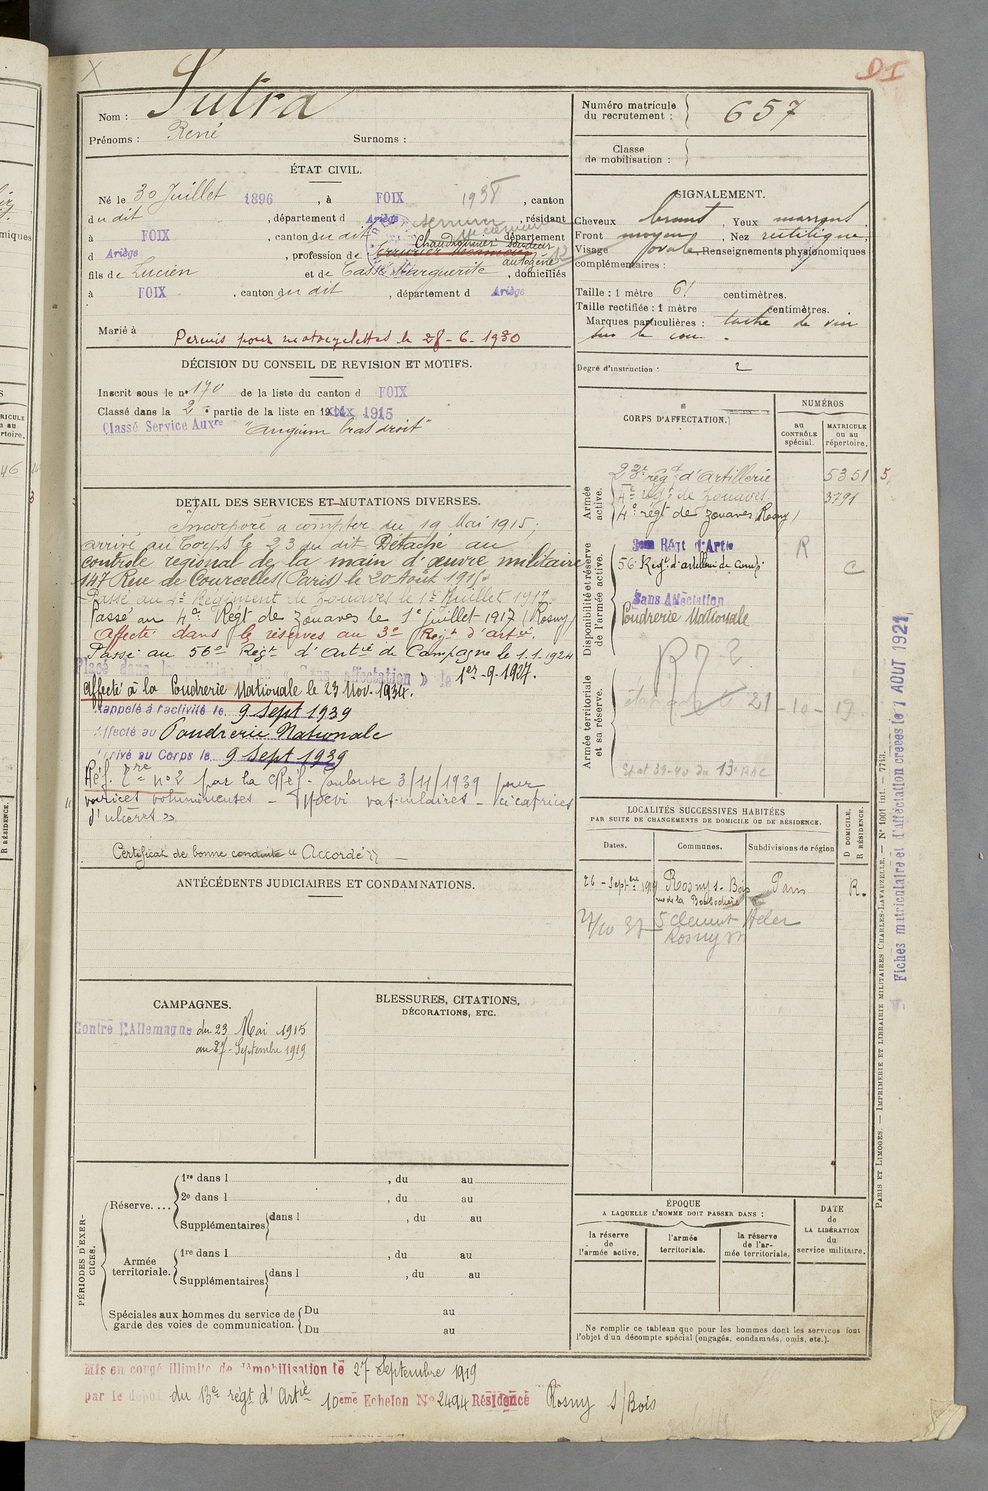 X
D I
Nom : Sutra
Prénoms : René Surnoms :
Numéro matricule du recrutement : 657
Classe de mobilisation :
ÉTAT CIVIL.
Né le 30 Juillet 1896, à FOIX, canton
dudit, département d Ariège, résidant
à FOIX, canton dudit département
d Ariège, profession de Chaudronnier soudeur autogène
fils de Lucien et de Marguerite, domiciliés
à FOIX, canton dudit, département d Ariège
1938
Marié à
Permis pour motocyclettes le 28-6-1930
SIGNALEMENT.
Cheveux bruns, Yeux marrons
Front moyen, Nez rectiligne
Visage ovale Renseignements physionomiques
complémentaires :
Taille : 1 mètre 61 centimètres.
Taille rectifiée : 1 mètre centimètres.
Marques particulières : tache de vin
sur le cou.
Degré d'instruction : 2
DÉCISION DU CONSEIL DE REVISION ET MOTIFS.
Inscrit sous le no 170 de la liste du canton d FOIX
Classé dans la 2e partie de la liste en 19 1915
Classé Service Auxre "angiome bras droit"
DÉTAIL DES SERVICES ET MUTATIONS DIVERSES.
Incorporé à compter du 19 Mai 1915.
arrivé au Corps le 23 du dit Détaché au
contrôle régional de la main d'œuvre militaire
147 Rue de Courcelles (Paris) le 20 Août 191
Passé au 4e Régiment de Zouaves le 1er Juillet 1917
Passé au 4e Régt de Zouaves le 1er juillet 1917 (Rosny)
Affecté dans la réserve au 3e Régt d'artie.
Passé au 56e Régt d'Artie de Campagne le 1.1.1924
Placé dans la affectation » le 1er-9-1927.
Affecté à la Poudrerie Nationale le 23 Nov. 1934.
Rappelé à l'activité le 9 Sept 1939
Affecté au Poudrerie Nationale
Arrivé au Corps le 9 Sept 1939
Réf. no 2 par la CRéf. Toulouse 3/11/1939 pour
varices volumineuses - cicatrices
d'ulcères »
Certificat de bonne conduite « Accordé »
CORPS D'AFFECTATION.
NUMÉROS
au CONTRÔLE spécial.
MATRICULE ou au répertoire.
Armée active.
23e régt d'Artillerie 5351
4e régt de zouaves 3791
4e régt de zouaves Rosny
Disponibilité et réserve de l'armée active.
3eme Régt d'Artie R
56e Régt d'artillerie de Camp. C
Sans Affectation
Poudrerie Nationale
Armée territoriale et sa réserve.
21-10-19
LOCALITÉS SUCCESSIVES HABITÉES
PAR SUITE DE CHANGEMENTS DE DOMICILE OU DE RÉSIDENCE.
Dates. Communes. Subdivisions de région
D DOMICILE. R RÉSIDENCE.
26-Septbre 1919 Rosny s. Bois Paris R.
5 Clément Ader
Rosny
ANTÉCÉDENTS JUDICIAIRES ET CONDAMNATIONS.
CAMPAGNES.
Contre l'Allemagne du 23 Mai 1915
au 27 Septembre 1919
BLESSURES, CITATIONS,
DÉCORATIONS, ETC.
PÉRIODES D'EXERCICES.
Réserve....
1re dans l , du au
2e dans l , du au
Supplémentaires dans l , du au
Armée territoriale.
1re dans l , du au
Supplémentaires dans l , du au
Spéciales aux hommes du service de garde des voies de communication.
Du au
Du au
ÉPOQUE
A LAQUELLE L'HOMME DOIT PASSER DANS :
la réserve de l'armée active.
l'armée territoriale.
la réserve de l'armée territoriale.
DATE de LA LIBÉRATION du service militaire.
Ne remplir ce tableau que pour les hommes dont les services font
l'objet d'un décompte spécial (engagés, condamnés, omis, etc.).
Fiches matriculaire et d'affectation créées le 1 AOUT 1921
PARIS ET LIMOGES. — IMPRIMERIE ET LIBRAIRIE MILITAIRES CHARLES-LAVAUZELLE. — No 1001 int. — 7713.
Mis en congé illimité de démobilisation le 27 Septembre 1919
par le dépôt du 13e régt d'Artie 10eme Echelon No 2494 Résidence Rosny s/Bois